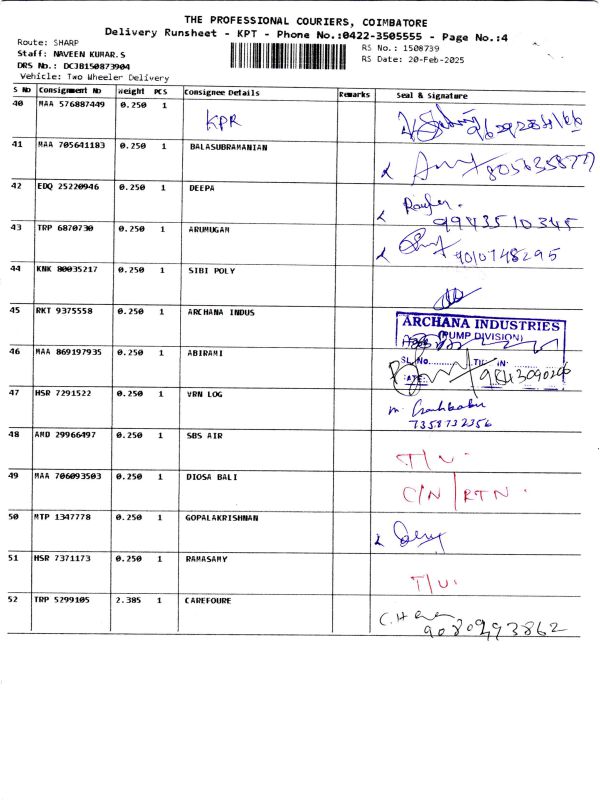 THE PROFESSIONAL COURIERS, COIMBATORE
Delivery Runsheet - KPT - Phone No.:0422-3505555 - Page No.:4
Route: SHARP
Staff: NAVEEN KUMAR.S
DRS No.: DCJB150873904
Vehicle: Two Wheeler Delivery
RS No.: 1508739
RS Date: 20-Feb-2025
S No Consignment No Weight PCS Consignee Details Remarks Seal & Signature
40 MAA 576887449 0.250 1 KPR
41 MAA 705641183 0.250 1 BALASUBRAMANIAN
42 EDQ 25220946 0.250 1 DEEPA 9943510345
43 TRP 6870730 0.250 1 ARUMUGAM 9010748295
44 KNK 80035217 0.250 1 SIBI POLY
45 RKT 9375558 0.250 1 ARCHANA INDUS
ARCHANA INDUSTRIES
(PUMP DIVISION)
46 MAA 869197935 0.250 1 ABIRAMI
SL.No.
47 HSR 7291522 0.250 1 VRN LOG
7358732356
48 AMD 29966497 0.250 1 SBS AIR T/U.
49 MAA 706093503 0.250 1 DIOSA BALI C/N RTN.
50 MTP 1347778 0.250 1 GOPALAKRISHNAN
51 HSR 7371173 0.250 1 RAMASAMY T/U.
52 TRP 5299105 2.385 1 CAREFOURE